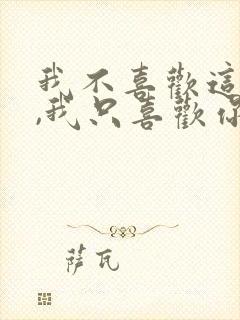 我不喜歡這
,我只喜歡你
萨瓦